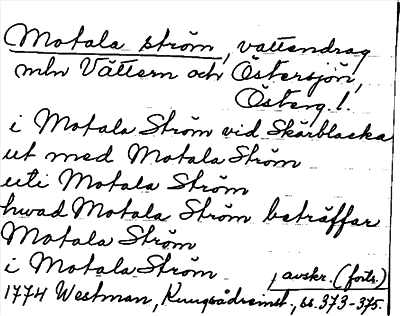 Motala ström, vattendrag
mln Vättern och Östersjön,
Österg. l.
i Motala Ström vid Skärblacka
ut med Motala Ström
uti Motala Ström
hwad Motala Ström beträffar
Motala Ström
i Motala Ström, avskr. (forts.)
1774 Westman, ss. 373-375.